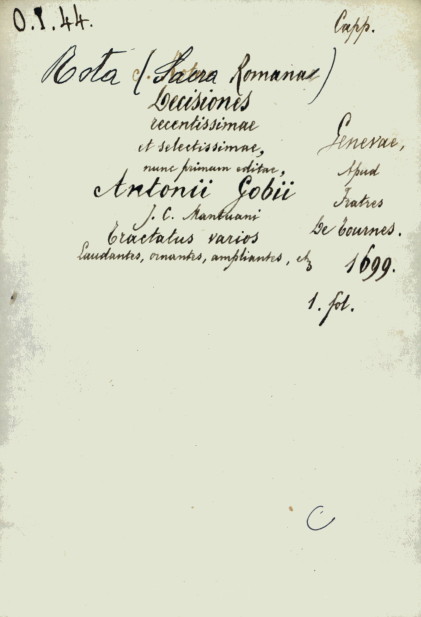 O.I.44.
Capp.
Rota (Sacra Romanae)
Decisiones
recentissimae
et selectissimae,
nunc primum editae,
Antonii Gobii
J. C. Mantuani
Tractatus varios
Laudantes, ornantes, ampliantes, etz
Genevae,
Apud
Fratres
De Tournes.
1699.
1. fol.
C